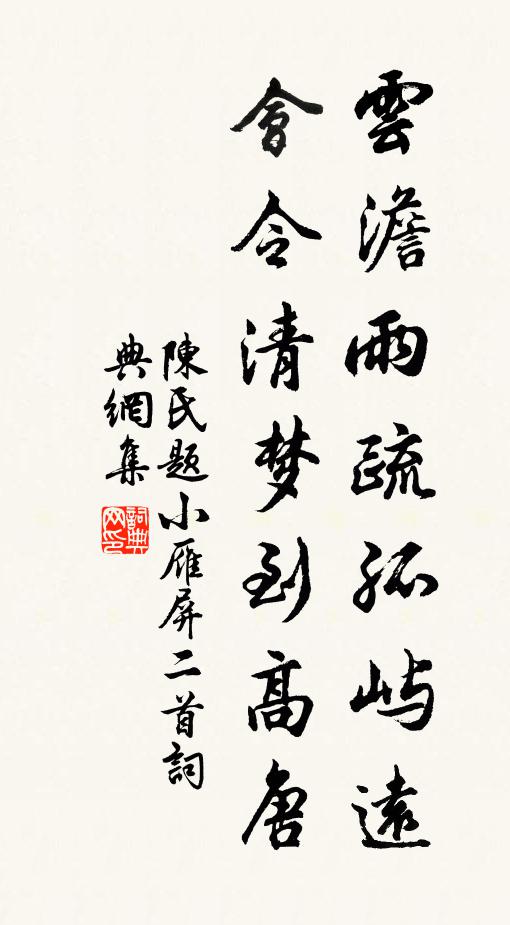 雲澹雨疏孤屿遠
會令清梦到髙唐
陳氏题小雁屏二首詞
典網集
詞典网印